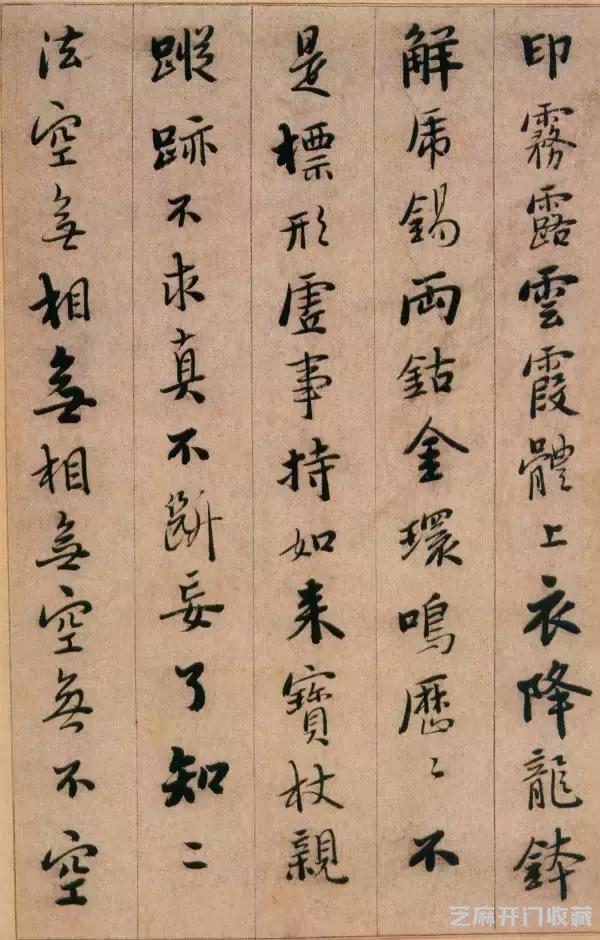 印霧露雲霞體上衣降龍鉢
解虎錫兩鈷金環鳴歷〻不
是標形虛事持如来寶杖親
蹤跡不求真不斷妄了知二
法空無相無相無空無不空
芝麻开门收藏